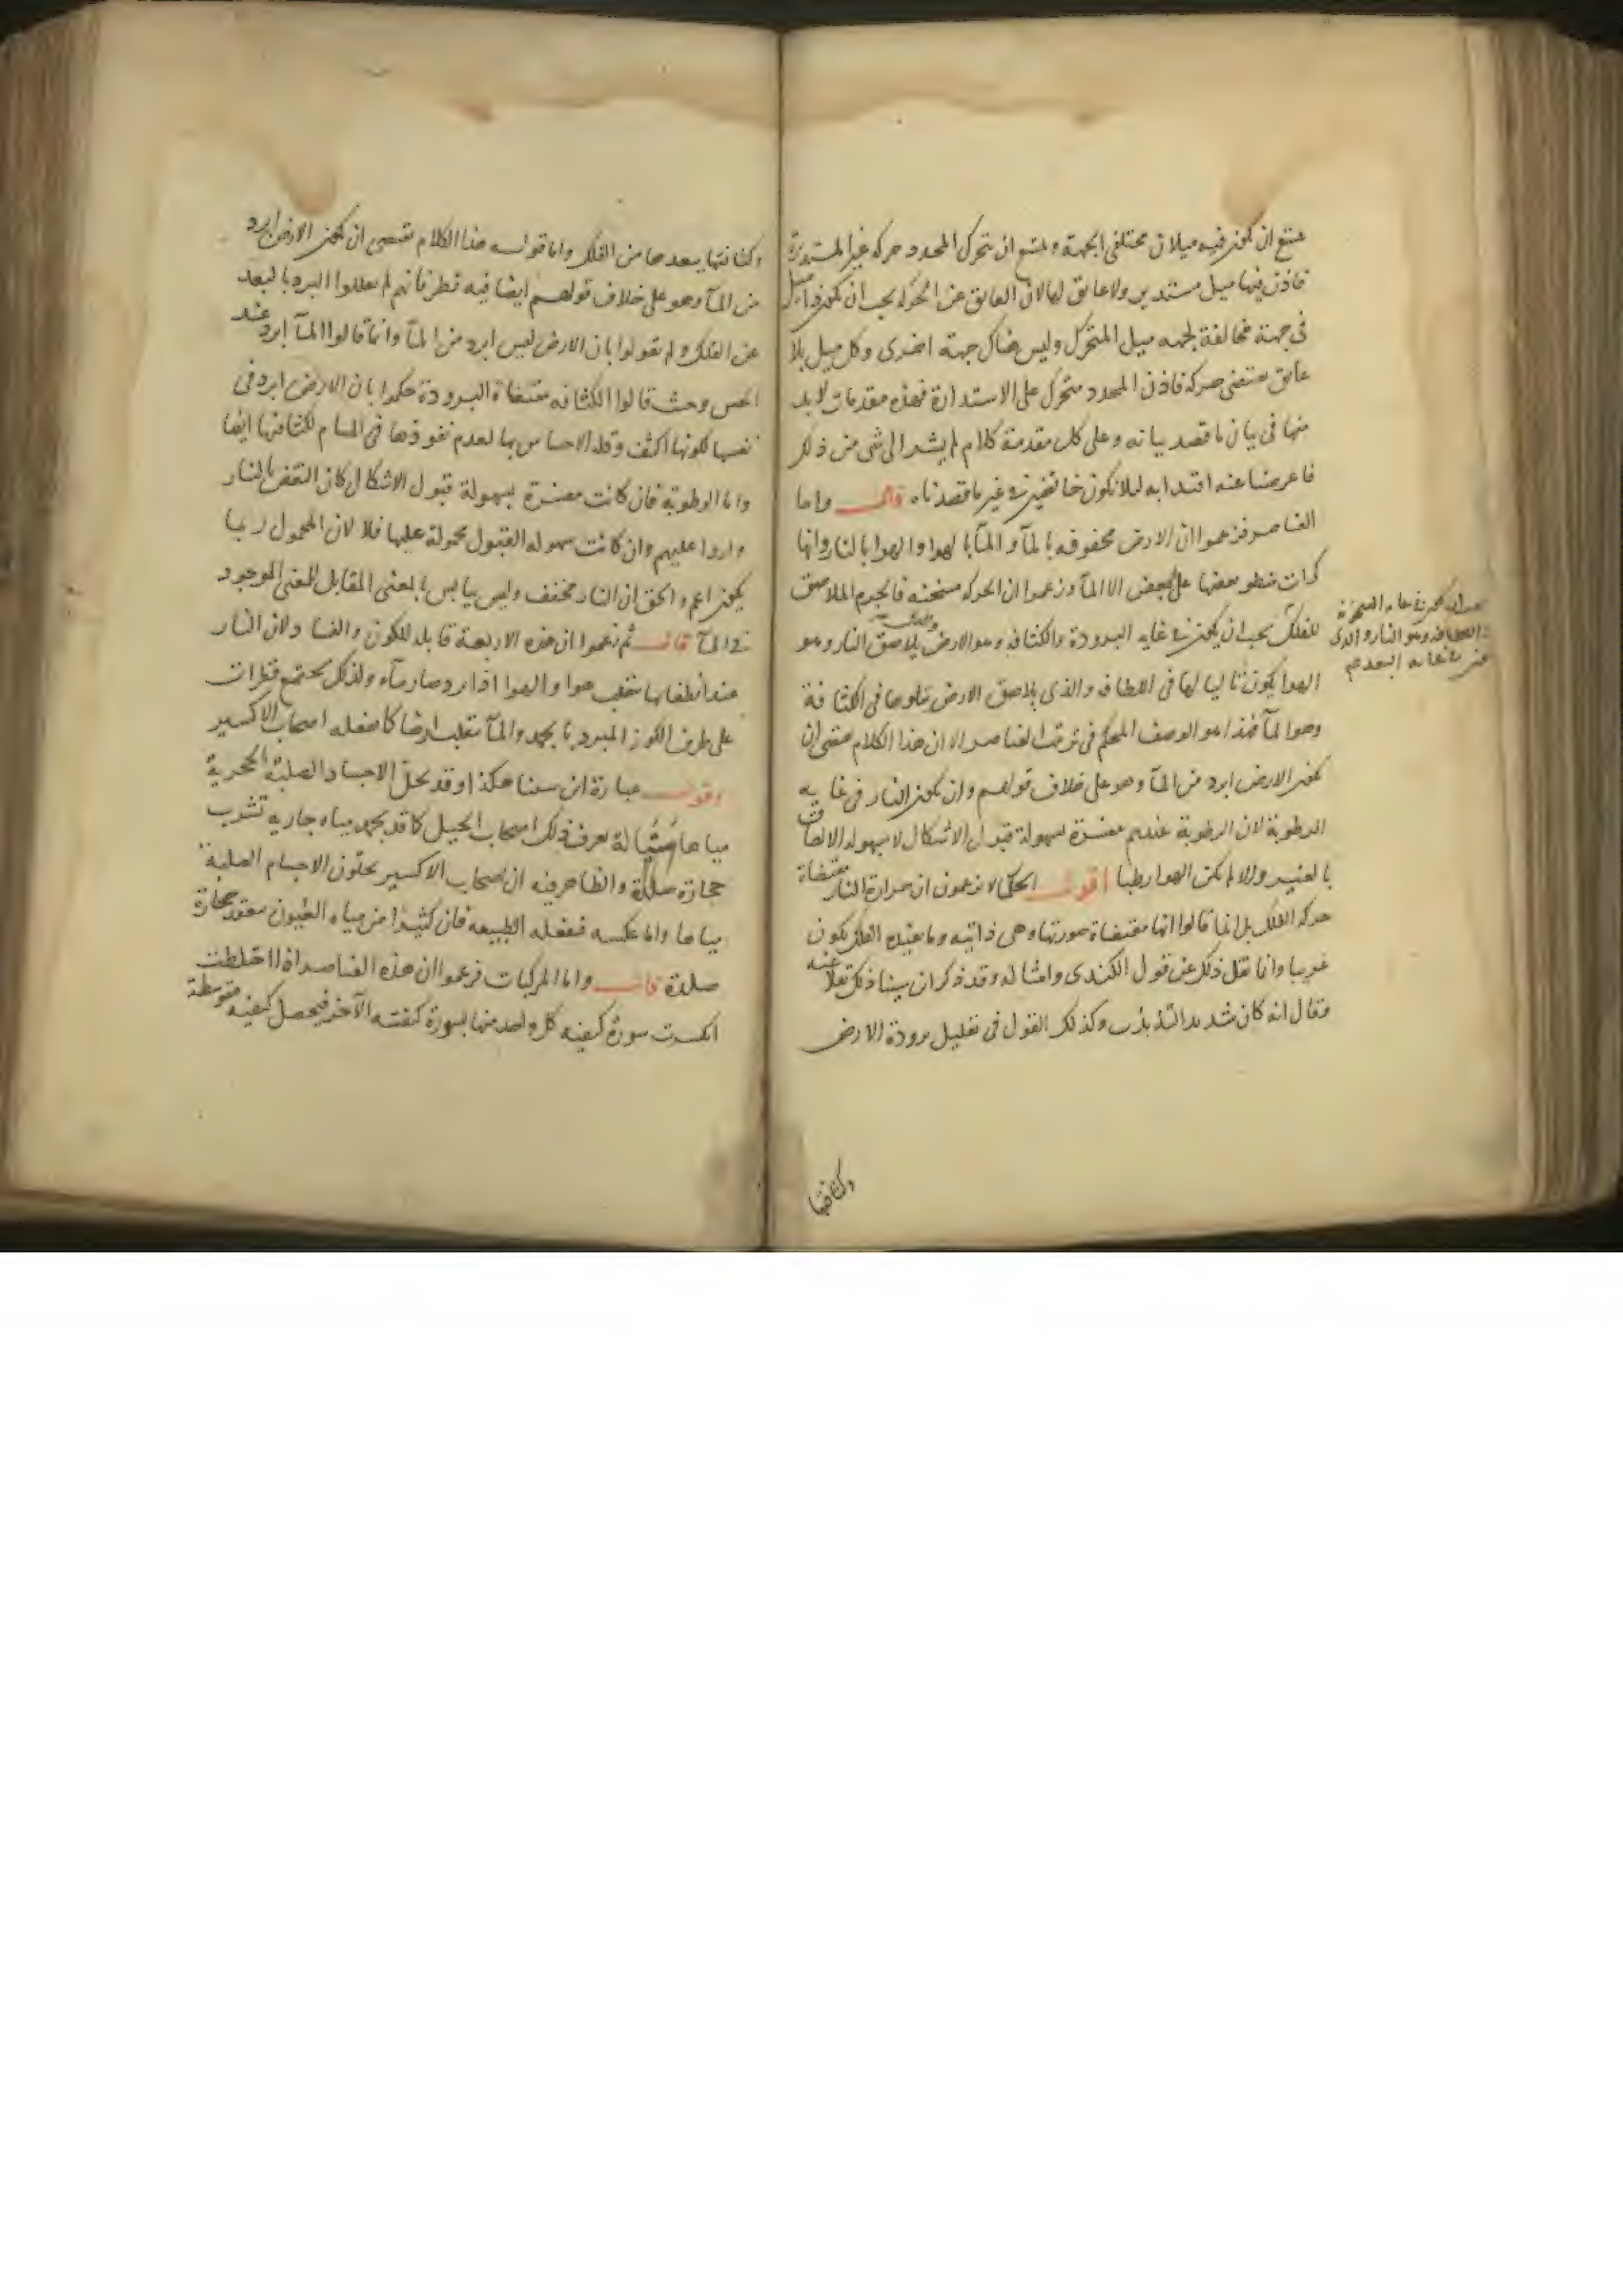 يمتنع ان يكون فيه ميلان مختلفى الجهة ويمتنع ان يتحرك المحدد حركة غير المستديرة
فاذن فيها ميل مستدير ولا عايق لها لان العايق عن الحركة يجب ان يكون فيه ميل
فى جهة مخالفة لجهة ميل المتحرك وليس هناك جهة اخرى وكل ميل بلا
عايق يقتضى حركة فاذن المحدد متحرك على الاستدارة فهذه مقدمات لا بد
منها فى بيان ما قصد بيانه وعلى كل مقدمة كلام لم يشر الى شى من ذلك
فاعرضنا عنه اقتدا به ليلا نكون خايضين فى غير ما قصدناه قال واما
العناصر فزعموا ان الارض محفوفه بالمآ والمآ بالهوا والهوا بالنار وانها
كرات ينطوى بعضها على بعض الا المآ وزعموا ان الحركه مسخنه فالجرم الملاصق
للفلك يجب ان يكون فى غايه البرودة والكثافه وهو الارض والذى يلاصق النار وهو
الهوا يكون تاليا لها فى اللطافه والذى يلاصق الارض يتلوها فى الكثافة
وهو المآ فهذا هو الوصف المحكم فى ترتيب العناصر الا ان هذا الكلام يقتضى ان
يكون الارض ابرد من المآ وهو على خلاف قولهم وان يكون النار فى غايه
الرطوبة لان الرطوبة عندهم مفسرة بسهولة قبول الاشكال لا بسهولة الالتصاق
بالغير والا لم يكن الهوا رطبا اقول الحكما لا يزعمون ان حرارة النار مقتضاة
حركه الفلك بل انما قالوا انها مقتضاة صورتها وهى ذاتيه وما يفيده الفلك يكون
غريبا وانما نقل ذلك عن قول الكندى وامثاله وقد ذكر ابن سينا ذلك نقلا عنه
وقال انه كان شديد التذبذب وكذلك القول فى تعليل برودة الارض
وكثافتها
يجب ان يكون فى غايه السخونة
واللطافه وهو النار والذى
فى غايه البعد عنه
وكثافتها ببعدها من الفلك واما قوله هذا الكلام يقتضى ان يكون الارض ابرد
من المآ وهو على خلاف قولهم ايضا فيه نظر فانهم لم يعللوا البرد بالبعد
عن الفلك ولم يقولوا بان الارض ليس ابرد من المآ وانما قالوا المآ ابرد عند
الحس وحيث قالوا الكثافه مقتضاة البرودة حكموا بان الارض ابرد فى
نفسها لكونها اكثف وقلة الاحساس بها لعدم نفوذها فى المسام لكثافتها ايضا
واما الرطوبة فان كانت مفسرة بسهولة قبول الاشكال كان النقض بالنار
واردا عليهم وان كانت سهوله القبول محمولة عليها فلا لان المحمول ربما
يكون اعم والحق ان النار مجفف وليس بيابس بالمعنى المقابل للمعنى الموجود
فى المآ قال ثم زعموا ان هذه الاربعة قابلة للكون والفساد لان النار
عند انطفايها ينقلب هوا والهوا اذا برد صار مآء ولذلك يجتمع قطرات
على طرف الكوز المبرد بالجمد والمآ ينقلب ارضا كما يفعله اصحاب الاكسير
اقول عبارة ابن سينا هكذا وقد يحل الاجساد الصلبة الحجرية
مياها سيالة يعرف ذلك اصحاب الحيل كما قد يجمد مياه جارية تشرب
حجارة صلدة والظاهر فيه ان اصحاب الاكسير يحلون الاجسام الصلبة
مياها واما عكسه فيفعله الطبيعه فان كثيرا من مياه العيون ينعقد حجارة
صلدة قال واما المركبات فزعموا ان هذه العناصر اذا اختلطت
انكسرت سورة كيفيه كل واحد منها بسورة كيفيته الآخر فيحصل كيفيه متوسطة